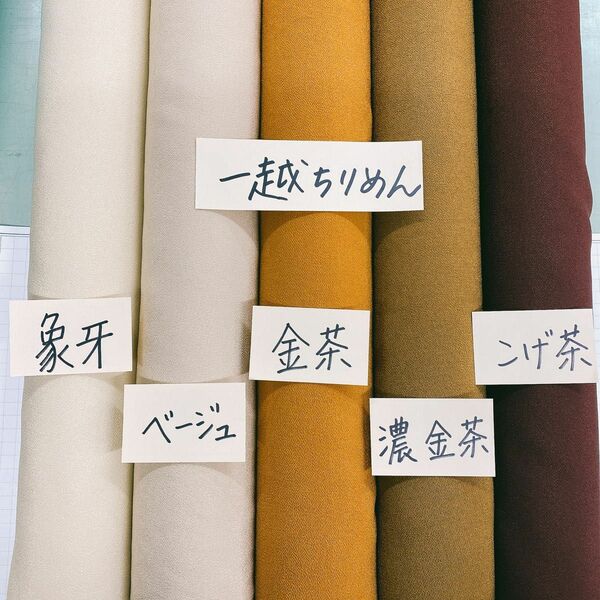 一越ちりめん
象牙
ベージュ
金茶
濃金茶
こげ茶